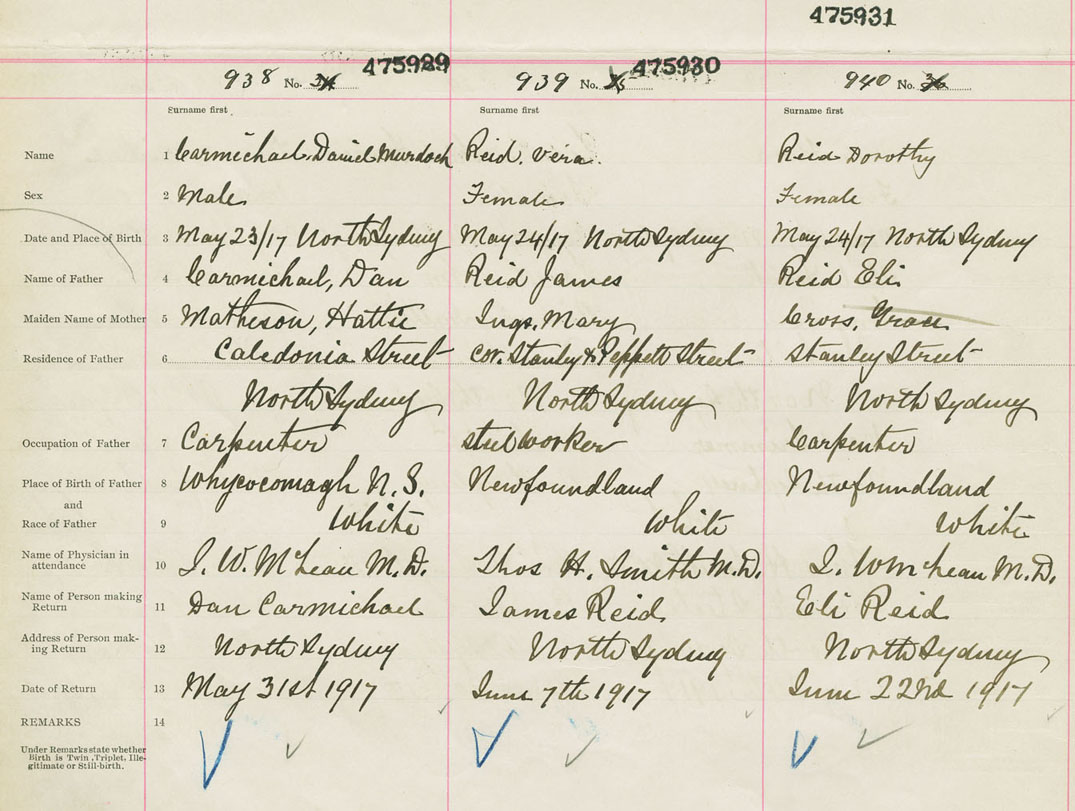 475931
938 No. 34 475929 939 No. 35 475930 940 No. 36
Surname first Surname first Surname first
Name 1 Carmichael, Daniel Murdoch Reid, Vera Reid Dorothy
Sex 2 Male Female Female
Date and Place of Birth 3 May 23/17 North Sydney May 24/17 North Sydney May 24/17 North Sydney
Name of Father 4 Carmichael, Dan Reid James Reid Eli
Maiden Name of Mother 5 Matheson, Hattie Ings, Mary Cross, Grace
Residence of Father 6 Caledonia Street cor. Stanly & Peppett Street Stanley Street
North Sydney North Sydney North Sydney
Occupation of Father 7 Carpenter steel worker Carpenter
Place of Birth of Father 8 Whycocomagh N.S. Newfoundland Newfoundland
and
Race of Father 9 White White White
Name of Physician in
attendance 10 J. W. McLean M.D. Thos H. Smith M.D. J. W McLean M.D.
Name of Person making
Return 11 Dan Carmichael James Reid Eli Reid
Address of Person mak-
ing Return 12 North Sydney North Sydney North Sydney
Date of Return 13 May 31st 1917 June 7th 1917 June 22nd 1917
REMARKS 14
Under Remarks state whether
Birth is Twin, Triplet, Ille-
gitimate or Still-birth.